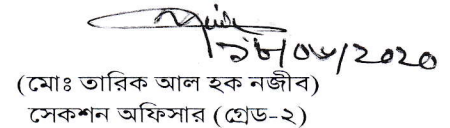 ১৮/০৬/2020
(মোঃ তারিক আল হক নজীব)
সেকশন অফিসার (গ্রেড-২)